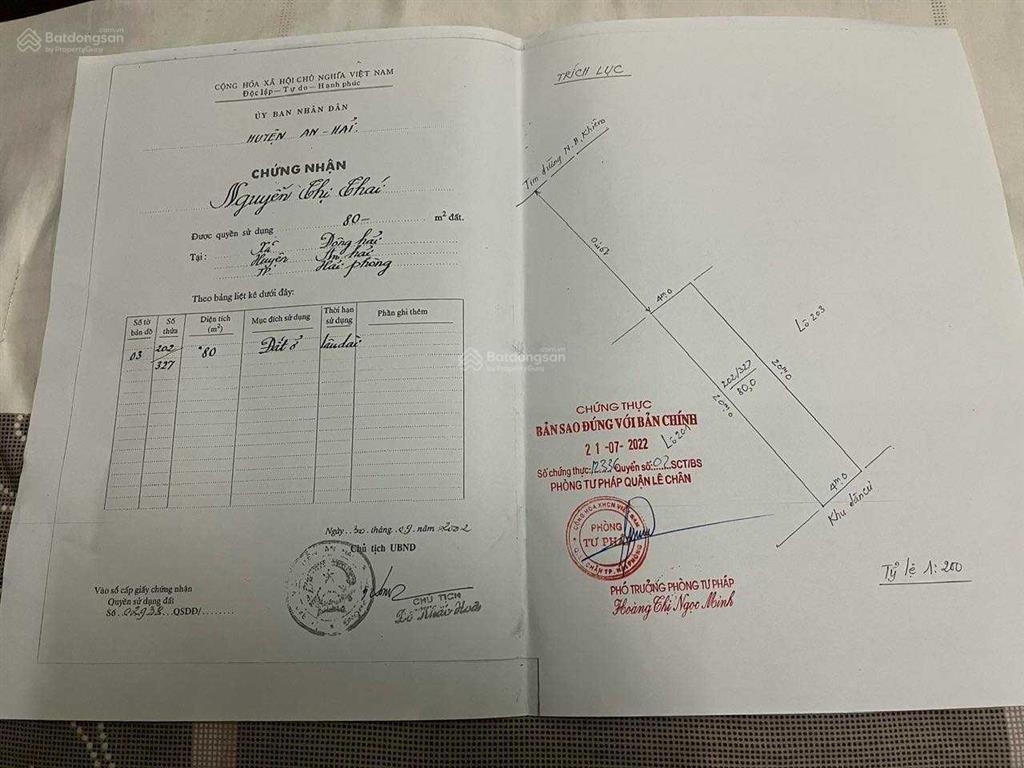 Batdongsan.com.vn
by PropertyGuru
CỘNG HÒA XÃ HỘI CHỦ NGHĨA VIỆT NAM
Độc lập - Tự do - Hạnh phúc
ỦY BAN NHÂN DÂN
HUYỆN AN-HẢI
CHỨNG NHẬN
Nguyễn Thị Thái
Được quyền sử dụng 80 m² đất.
Tại: Xã Đông hải
Huyện An hải
TP. Hải phòng
Theo bảng liệt kê dưới đây:
Số tờ bản đồ Số thửa Diện tích (m²) Mục đích sử dụng Thời hạn sử dụng Phần ghi thêm
03 202/327 80 Đất ở lâu dài
Ngày 30 tháng 09 năm 2002
Chủ tịch UBND
CHỦ TỊCH
Vào sổ cấp giấy chứng nhận
Quyền sử dụng đất
Số 02938 QSDĐ/
TRÍCH LỤC
Tim đường N.B. Khiêm
4m,0
Lô 203
20m,0
202/327
80,0
20m,0
Lô 201
4m,0
Khu dân cư
Tỷ lệ 1:200
Batdongsan
by PropertyGuru
CHỨNG THỰC
BẢN SAO ĐÚNG VỚI BẢN CHÍNH
21-07-2022
Số chứng thực: 12336 Quyển số: 02 SCT/BS
PHÒNG TƯ PHÁP QUẬN LÊ CHÂN
PHÒNG
TƯ PHÁP
PHÓ TRƯỞNG PHÒNG TƯ PHÁP
Hoàng Thị Ngọc Minh
Batdongsan.com.vn
by PropertyGuru